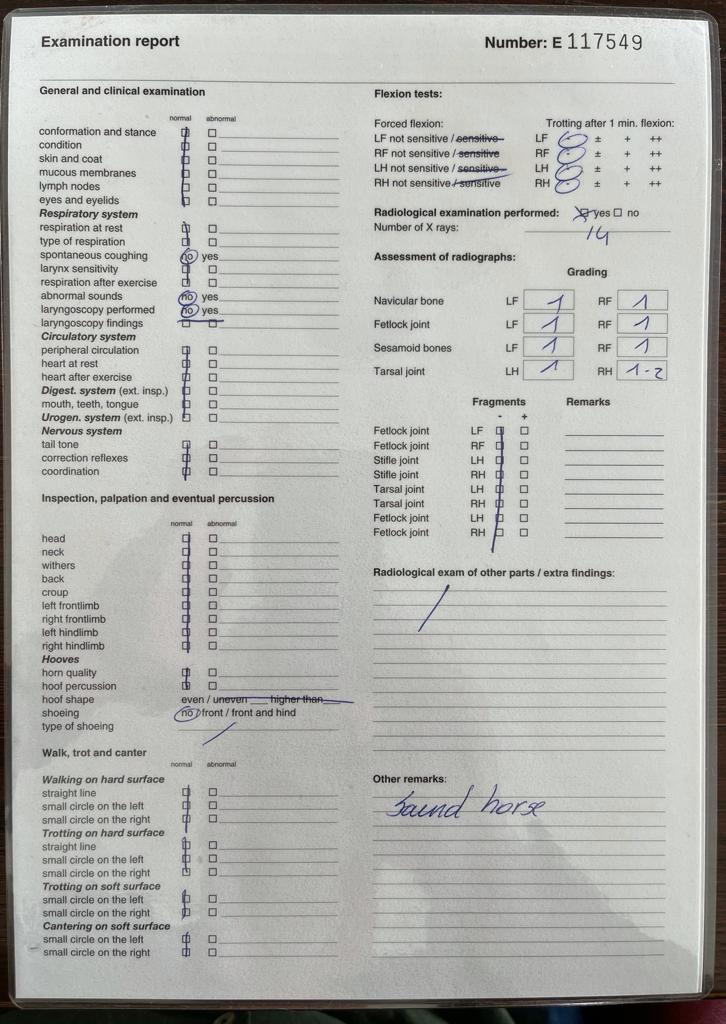 Examination report
Number: E 117549
General and clinical examination
normal abnormal
conformation and stance
condition
skin and coat
mucous membranes
lymph nodes
eyes and eyelids
Respiratory system
respiration at rest
type of respiration
spontaneous coughing no yes
larynx sensitivity
respiration after exercise
abnormal sounds no yes
laryngoscopy performed no yes
laryngoscopy findings
Circulatory system
peripheral circulation
heart at rest
heart after exercise
Digest. system (ext. insp.)
mouth, teeth, tongue
Urogen. system (ext. insp.)
Nervous system
tail tone
correction reflexes
coordination
Inspection, palpation and eventual percussion
normal abnormal
head
neck
withers
back
croup
left frontlimb
right frontlimb
left hindlimb
right hindlimb
Hooves
horn quality
hoof percussion
hoof shape even / uneven ___ higher than
shoeing no / front / front and hind
type of shoeing
Walk, trot and canter
normal abnormal
Walking on hard surface
straight line
small circle on the left
small circle on the right
Trotting on hard surface
straight line
small circle on the left
small circle on the right
Trotting on soft surface
small circle on the left
small circle on the right
Cantering on soft surface
small circle on the left
small circle on the right
Flexion tests:
Forced flexion: Trotting after 1 min. flexion:
LF not sensitive / sensitive LF - ± + ++
RF not sensitive / sensitive RF - ± + ++
LH not sensitive / sensitive LH - ± + ++
RH not sensitive / sensitive RH - ± + ++
Radiological examination performed: yes no
Number of X rays: 14
Assessment of radiographs:
Grading
Navicular bone LF 1 RF 1
Fetlock joint LF 1 RF 1
Sesamoid bones LF 1 RF 1
Tarsal joint LH 1 RH 1-2
Fragments Remarks
- +
Fetlock joint LF
Fetlock joint RF
Stifle joint LH
Stifle joint RH
Tarsal joint LH
Tarsal joint RH
Fetlock joint LH
Fetlock joint RH
Radiological exam of other parts / extra findings:
Other remarks:
Sound horse